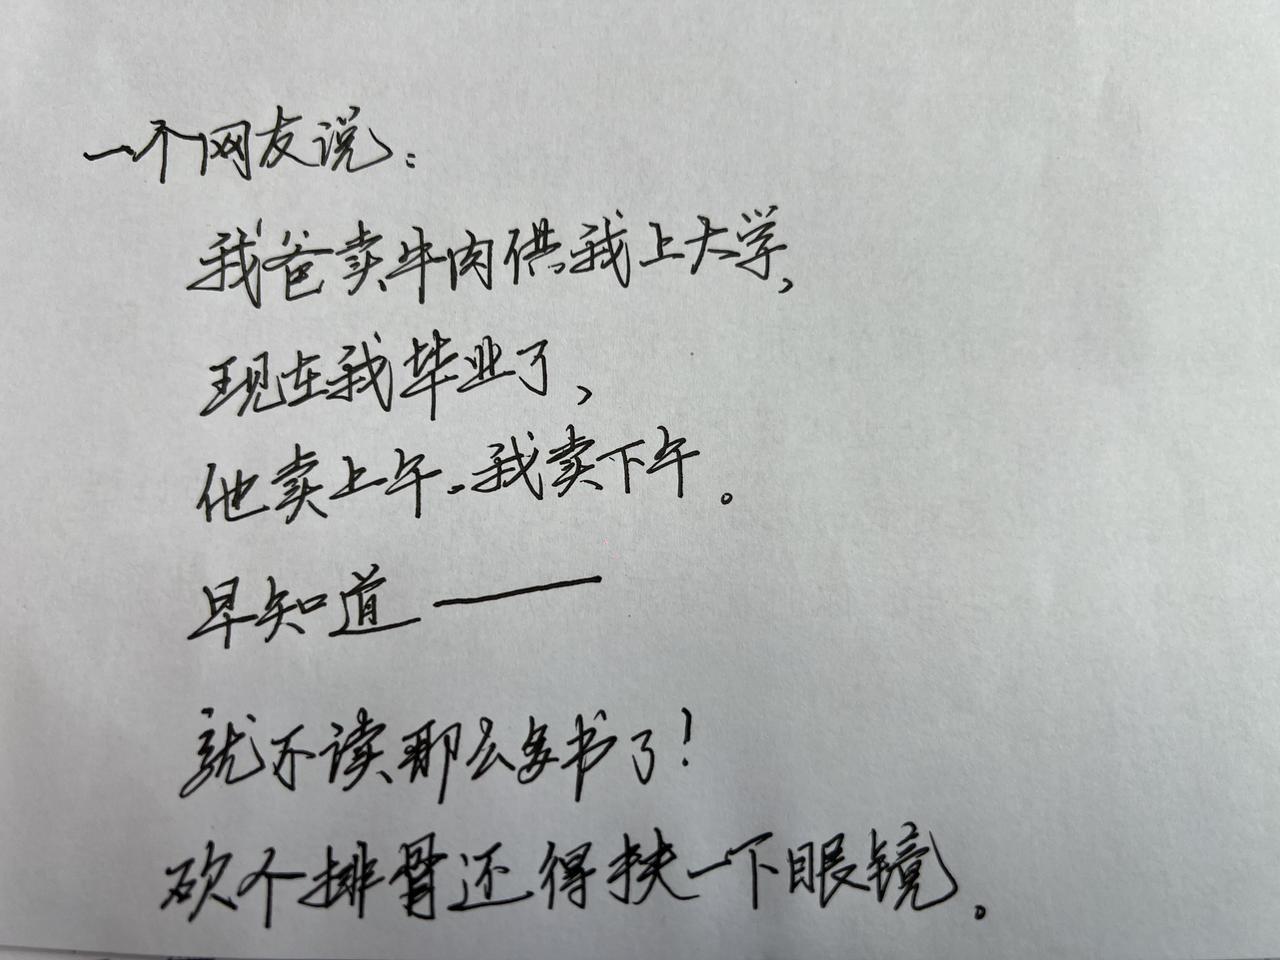 一个网友说：
我爸卖牛肉供我上大学，
现在我毕业了，
他卖上午、我卖下午。
早知道——
就不读那么多书了！
砍个排骨还得扶一下眼镜。